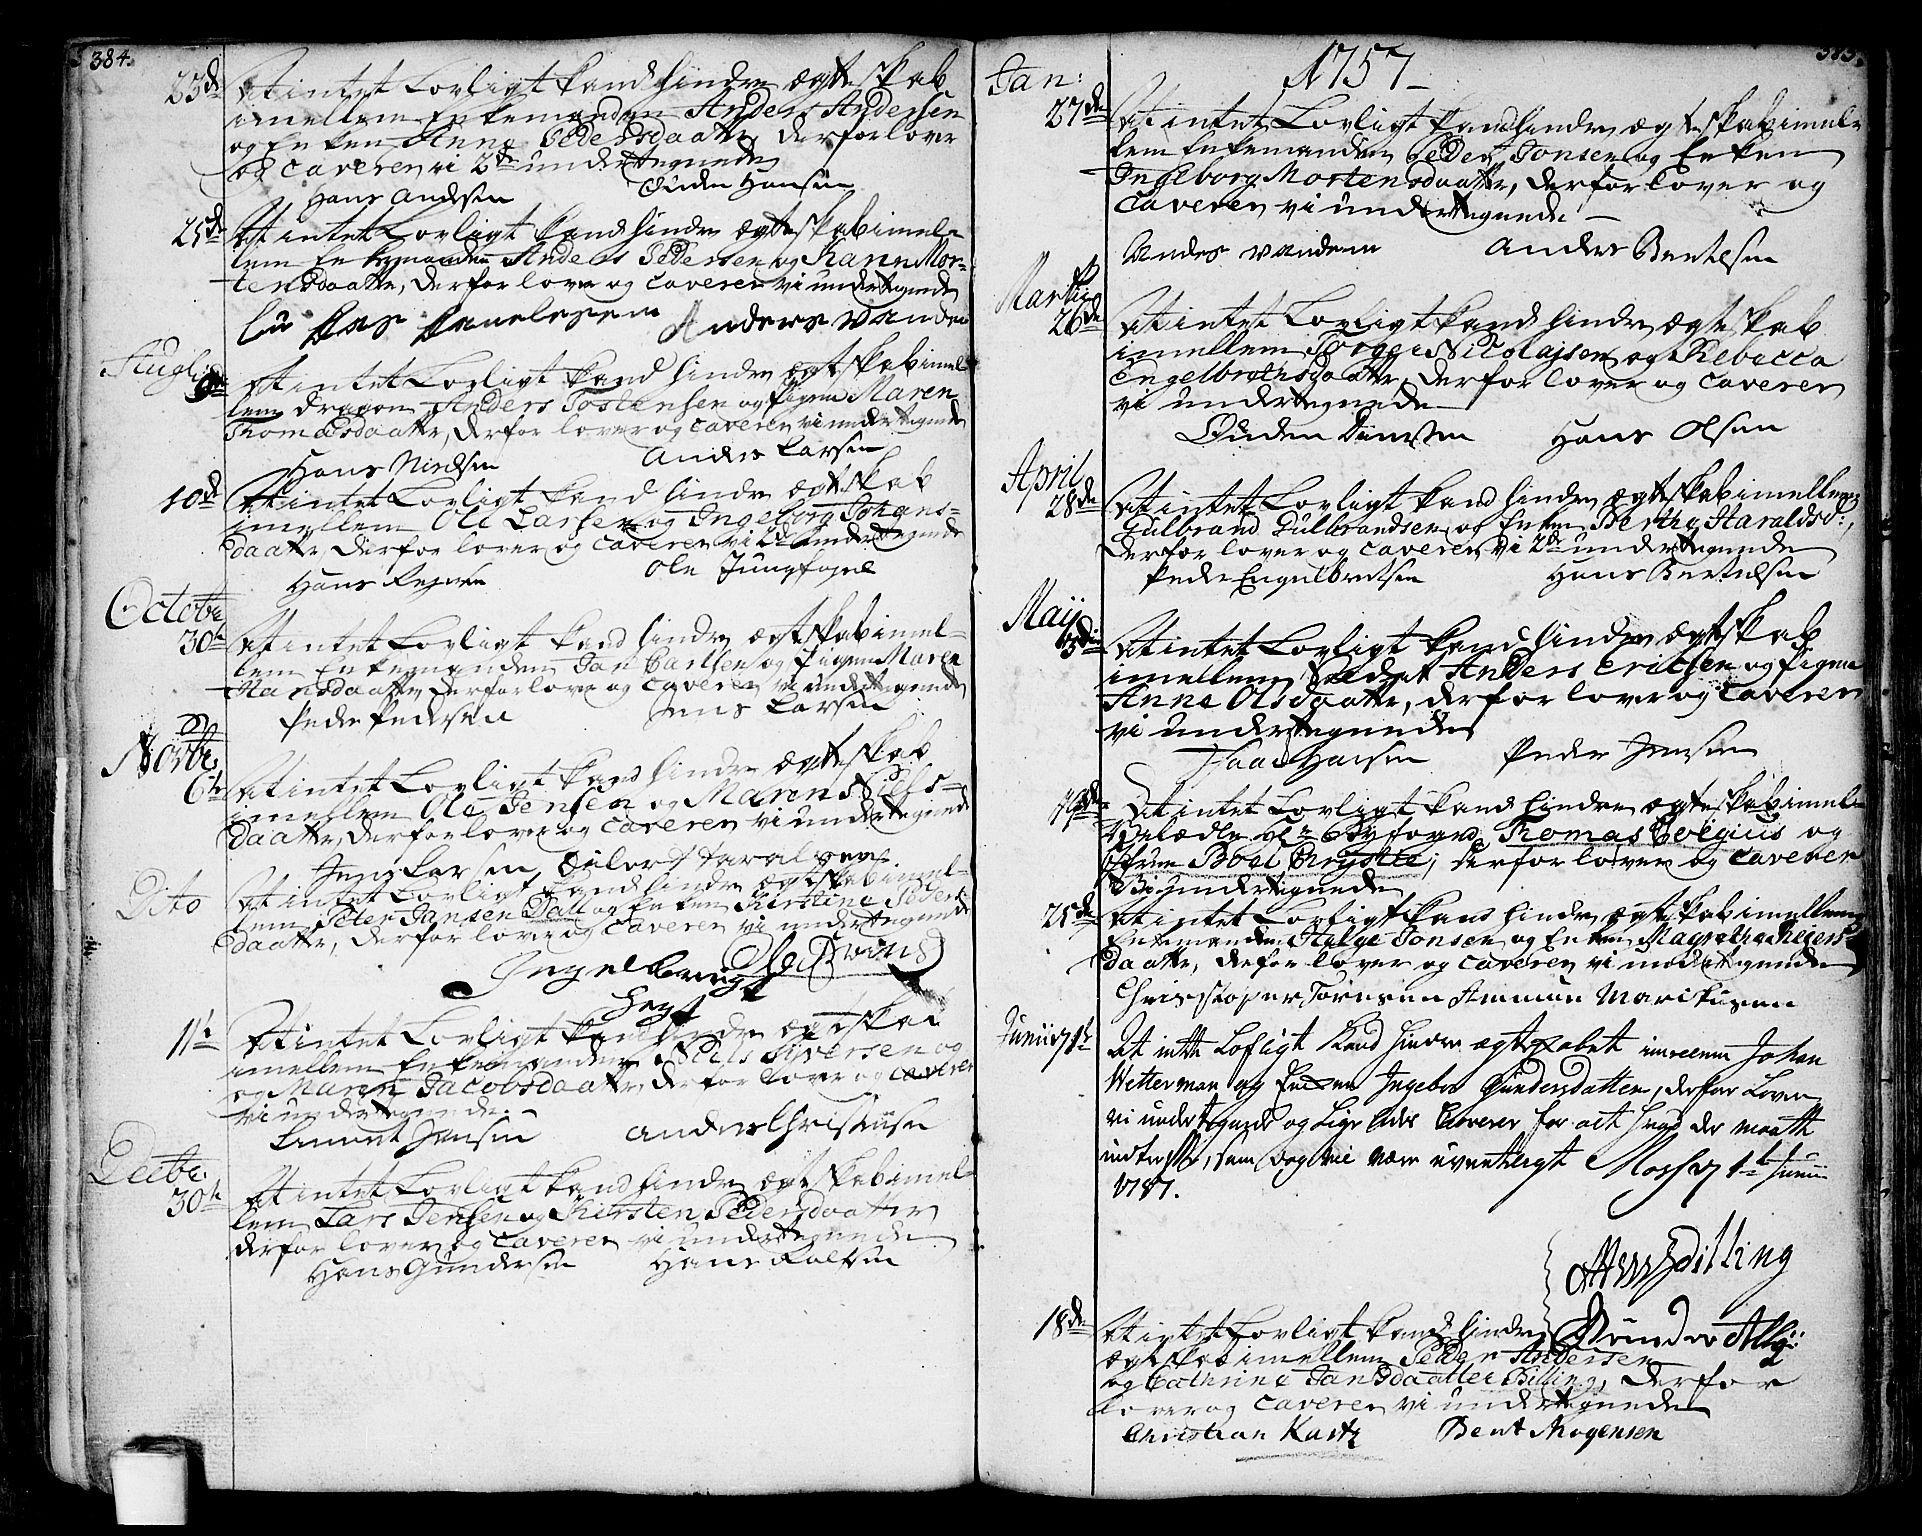 384.
23de At intet Lovligt kand hindre ægteskab
imellem Enkemanden Anders Andersen
og Enken Anne Pedersdaatter, derfor lover
og caverer vi 2de undertegnede
Hans Andersen Auden Hansen
25de At intet Lovligt kand hindre ægteskab imel-
lem Anders Pedersen og Karen Mor-
tensdaatter, derfor lover og caverer vi undertegnede
Anders Vanden
At intet Lovligt kand hindre ægteskab imel-
lem dragon Anders Tostensen og Pigen Maren
Thomasdaatter, derfor lover og caverer vi undertegnede
Hans Nielsen Anders Larsen
10de At intet Lovligt kand hindre ægteskab
imellem Ole Larsen og Ingeborg Johans-
daatter, derfor lover og caverer vi 2de undertegnede
Hans Ole Jungfogel
Octobr
30te At intet Lovligt kand hindre ægteskab imel-
lem Enkemanden Jan Carlsen og Pigen Maren
Hansdaatter, derfor lover og caverer vi undertegnede
Peder Pedersen Jens Larsen
Novbr
6te At intet Lovligt kand hindre ægteskab
imellem Ole Jensen og Maren Niels-
daatter, derfor lover og caverer vi undertegnede
Jens Larsen,
Dito At intet Lovligt kand hindre ægteskab imel-
lem Peter Jansen Dall og Enken Kirstine Peders-
daatter, derfor lover og caverer vi undertegnede
Ingelbrigt
11te At intet Lovligt kand hindre ægteskab
imellem Enkemanden Niels Siversen og
og Maren Jacobsdaatter, derfor lover og caverer
vi undertegnede.
Jensen Anders Christensen
Decbr
30te At intet Lovligt kand hindre ægteskab imel-
lem Lars Jensen og Kirsten Pedersdaatter
derfor lover og caverer vi undertegnede
Hans Gundersen Hans
385.
1757
Jan:
27de At intet Lovligt kand hindre ægteskab imel-
lem Enkemanden Peder Jonsen og Enken
Ingeborg Mortensdaatter, derfor lover og
caverer vi undertegnede
Andes Vandem Anders Bertelsen
Martii
26de At intet Lovligt kand hindre ægteskab
imellem Torger Nicolajsen og Rebecca
Engelbrethsdaatter, derfor lover og caverer
vi undertegnede
Auden Hans Olsen
April
28de At intet Lovligt kand hindre ægteskab imellem
Gulbrand Gulbrandsen og Enken Berthe Haraldsd:,
derfor lover og caverer vi 2de undertegnede
Peder Engelbretsen Hans Bertelsen
Maij
5de At intet Lovligt kand hindre ægteskab
imellem Anders Ericksen og Pigen
Anne Olsdaatter, derfor lover og caverer
vi undertegnede
Hansen Peder Jensen
19de At intet Lovligt kand hindre ægteskab imel-
Byfoged Thomas og
Jfrue Bodel, derfor lover og caverer
Vi Undertegnede
25de At intet Lovligt kand hindre ægteskab imellem
Enkemanden Helge Jonsen og Enken Magrethe Reiers-
daatter, derfor lover og caverer vi undertegnede
Christopher Ammun
Junii 1te At intet Lofligt kand hindre ægteskabet imellem Johan
Wetterman og Enken Ingebor Gundersdatter, derfor Lover
vi undertegnede og Ligeledes Caverer for alt hvad der maatte
indtreffe, som dog vil være uventligt Moss 1te Junii
1757.
18de At intet Lovligt kand hindre
ægteskab imellem Peder Andersen
og Cathrine Jansdaatter Billing, derfor
lover og caverer vi undertegnede
Christian Kurtz Bent Mogensen